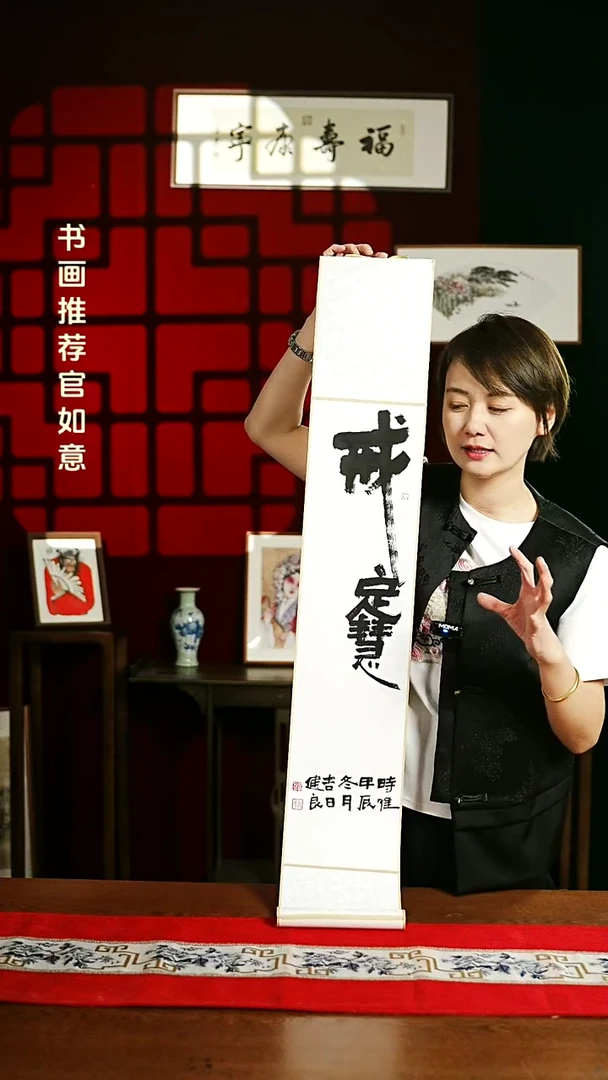 福壽康寧
书画推荐官如意
戒定慧
時惟
甲辰
冬月
吉日
健良
MOMA